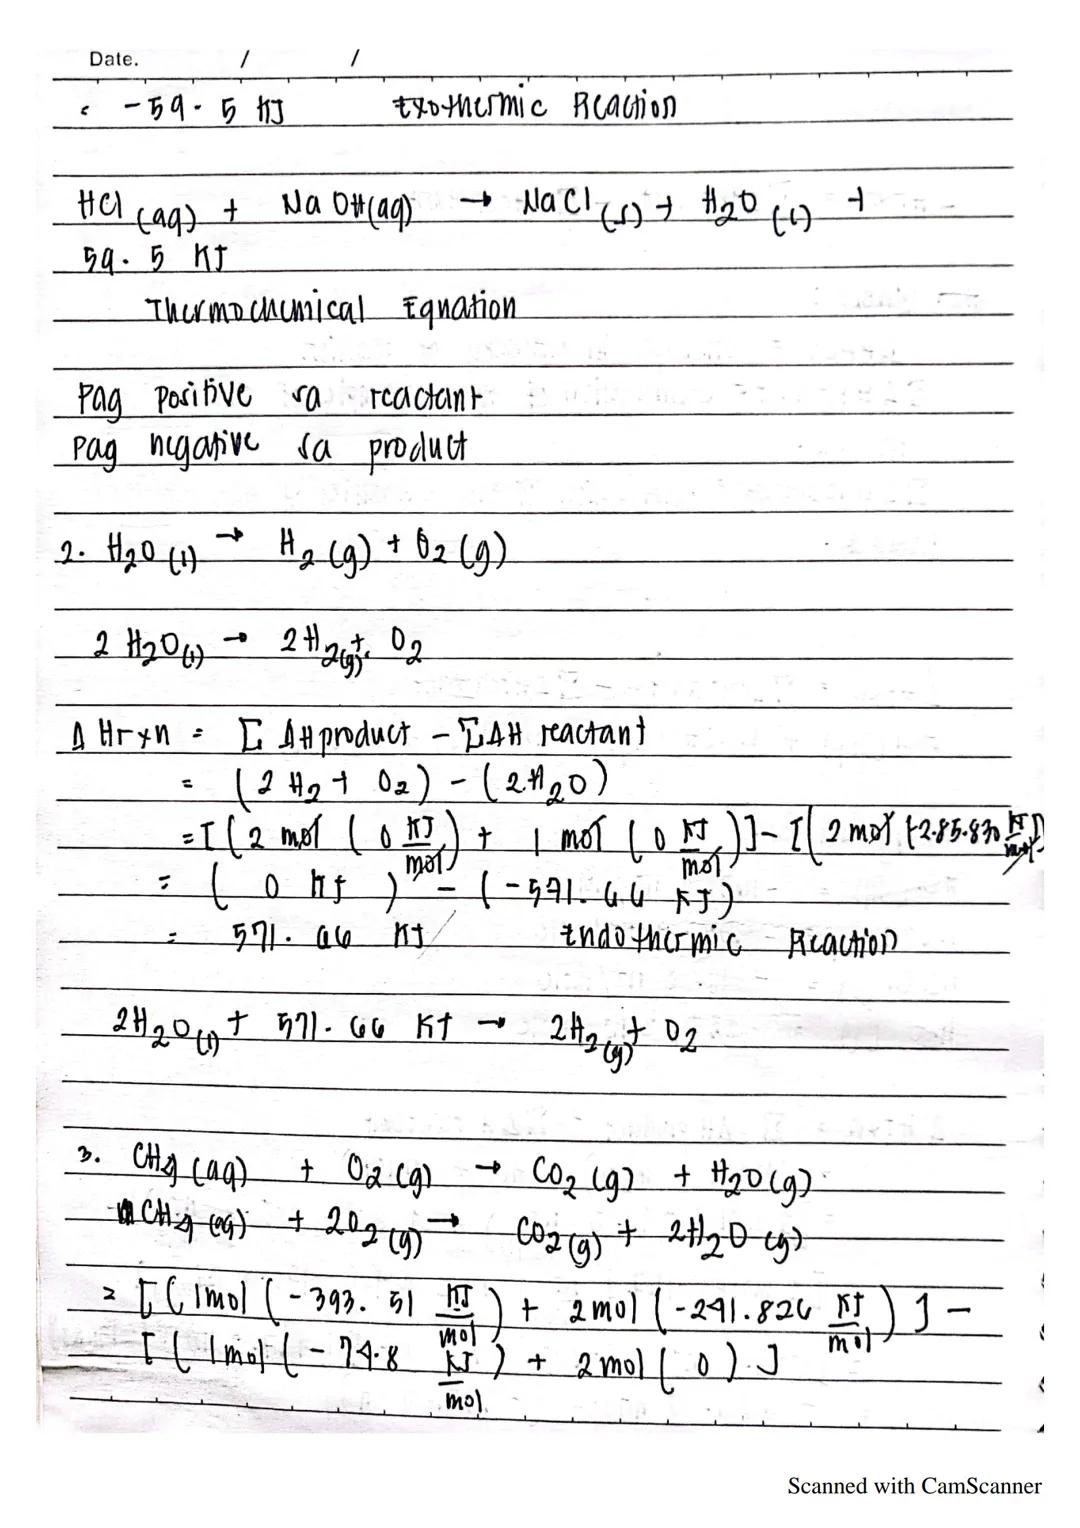 Date. / /
= -59.5 KJ Exothermic Reaction
HCl (aq) + NaOH(aq) → NaCl (s) + H2O (l) +
59.5 KJ
Thermochemical Equation
Pag positive sa reactant
Pag negative sa product
2. H2O (l) → H2 (g) + O2 (g)
2 H2O (l) → 2H2(g) + O2
Δ Hrxn = Σ ΔHproduct - ΣΔH reactant
= (2 H2 + O2) - (2 H2O)
= [(2 mol (0 KJ/mol) + 1 mol (0 KJ/mol)] - [(2 mol (-285.830 KJ/mol)]
= (0 KJ) - (-571.66 KJ)
= 571.66 KJ Endothermic Reaction
2H2O (l) + 571.66 KJ → 2H2 (g) + O2
3. CH4 (aq) + O2 (g) → CO2 (g) + H2O (g)
CH4 (aq) + 2O2 (g) → CO2 (g) + 2H2O (g)
= [(1mol (-393.51 KJ/mol) + 2 mol (-241.826 KJ/mol)] -
[(1mol (-74.8 KJ/mol) + 2 mol (0)]
Scanned with CamScanner